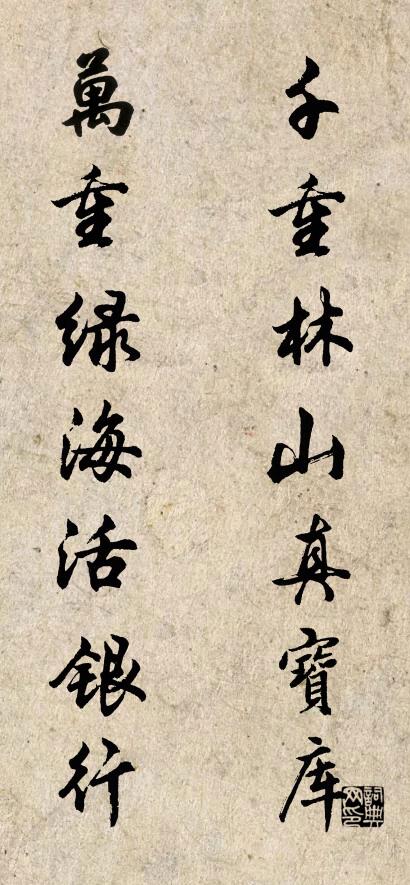 千重林山真寶库
萬重绿海活银行
詞典网印